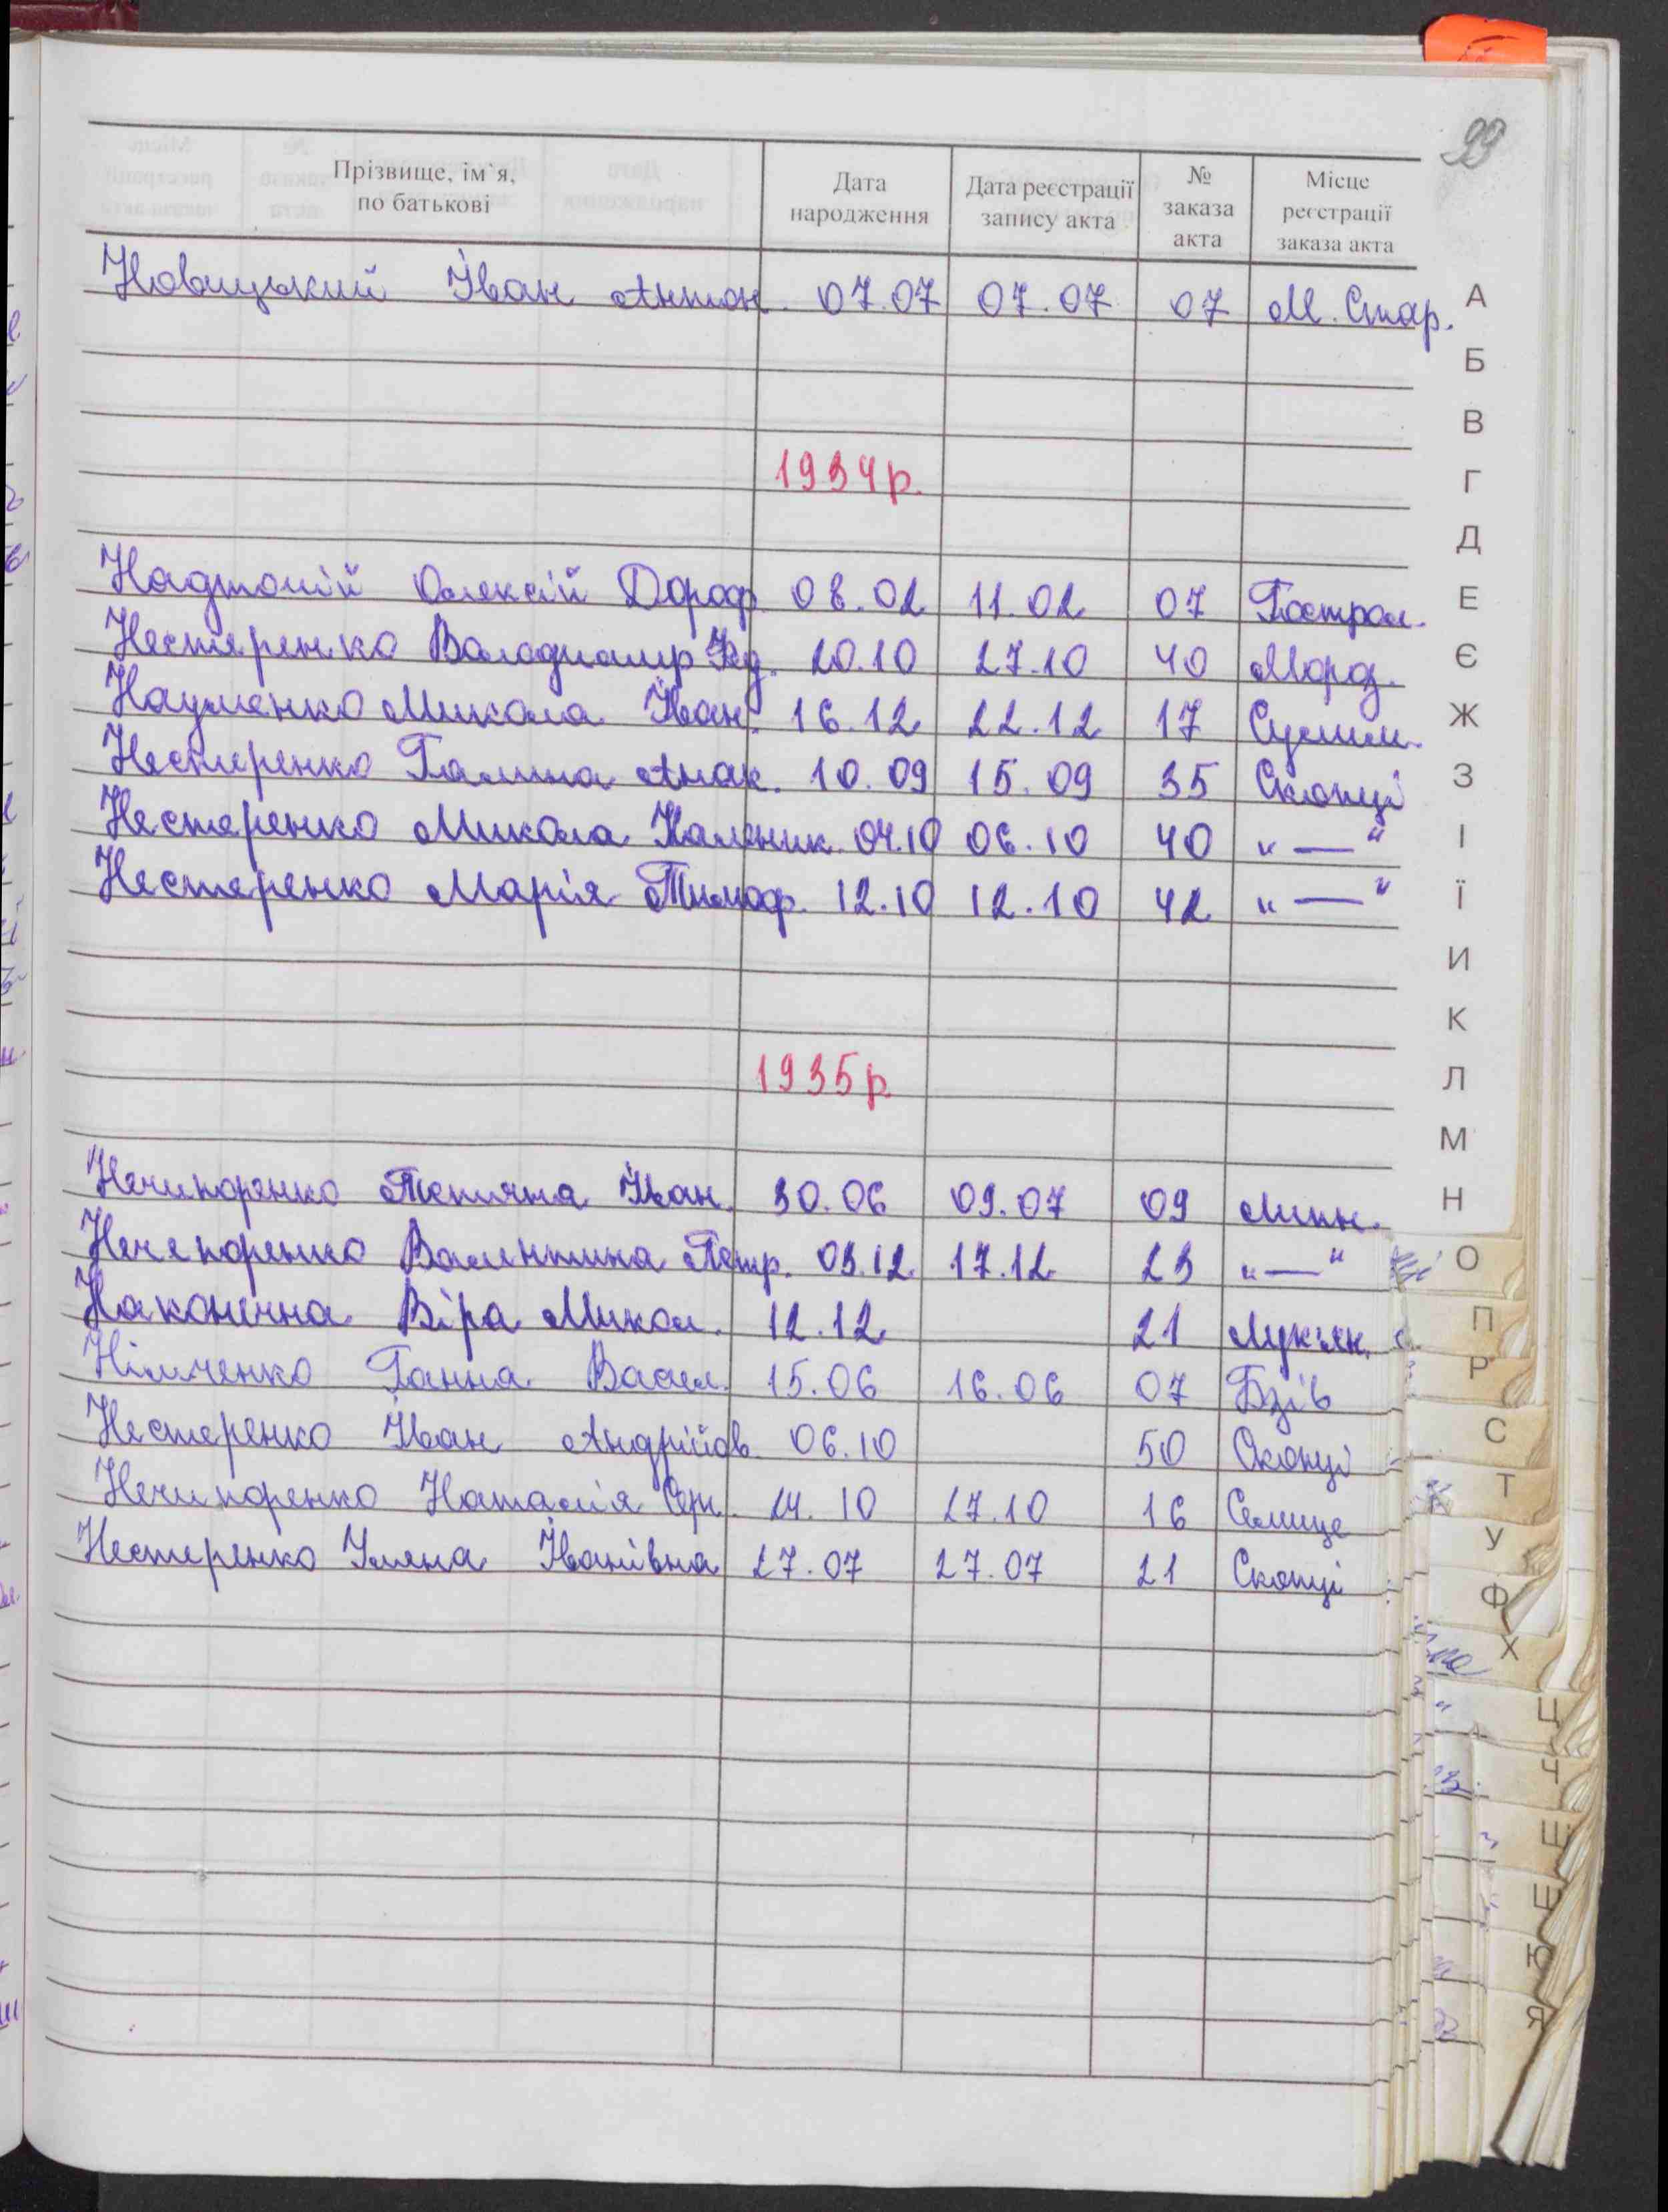 99
Прізвище, ім`я, по батькові | Дата народження | Дата реєстрації запису акта | № заказа акта | Місце реєстрації заказа акта
Новицький Іван Антон. 07.07 07.07 07 М. Стар.
1934 р.
Надточій Олексій Дороф. 08.02 11.02 07 Гострол.
Нестеренко Володимир Фед. 20.10 27.10 40 Мороз.
Науменко Микола Іван. 16.12 22.12 17 Сулим.
Нестеренко Галина Анак. 10.09 15.09 35 Скопці
Нестеренко Микола Каленик. 04.10 06.10 40 " — "
Нестеренко Марія Тимоф. 12.10 12.10 42 " — "
1935 р.
Нечипоренко Тетяна Іван. 30.06 09.07 09 Липн.
Нечепоренко Валентина Петр. 03.12 17.12 23 " — "
Наконечна Віра Микол. 12.12 21 Лук'ян.
Німченко Ганна Васил. 15.06 16.06 07 Бзів
Нестеренко Іван Андрійов. 06.10 50 Скопці
Нечипоренко Наталія Сер. 24.10 27.10 16 Селище
Нестеренко Уляна Іванівна 27.07 27.07 21 Скопці
А
Б
В
Г
Д
Е
Є
Ж
З
І
Ї
И
К
Л
М
Н
О
П
Р
С
Т
У
Ф
Х
Ц
Ч
Ш
Я